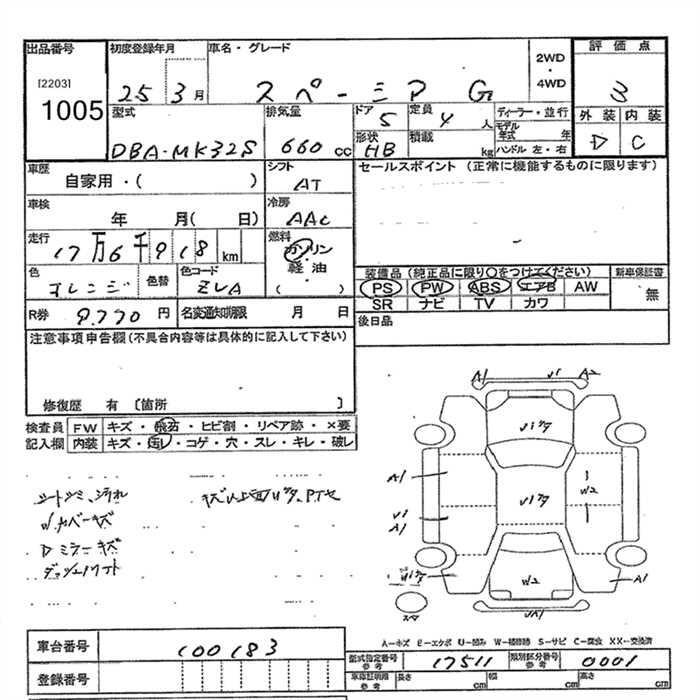 出品番号 初度登録年月 車名・グレード 2WD・4WD 評価点
[2203] 1005 25 3月 スペーシア G 3
型式 排気量 ドア 5 定員 4人 ディーラー・並行 外装 内装
DBA-MK32S 660 cc 形状 HB 積載 kg モデル年式 年 ハンドル 左・右 D C
車歴 シフト セールスポイント (正常に機能するものに限ります)
自家用・( ) AT
車検 冷房
年 月( 日) AAC
走行 燃料
17万6千918 km ガソリン・軽油
( )
色 色替 色コード 装備品 (純正品に限り○をつけてください) 新車保証書
オレンジ ZLA PS PW ABS エアB AW 無
SR ナビ TV カワ
R券 9,770 円 名変通知期限 月 日 後日品
注意事項申告欄 (不具合内容等は具体的に記入して下さい)
修復歴 有 〔箇所 〕
検査員 FW キズ・飛石・ヒビ割・リペア跡・×要
記入欄 内装 キズ・汚レ・コゲ・穴・スレ・キレ・破レ
シートシミ、汚れ
内カバーキズ
Dミラーキズ
A1 A2
A1
W2
A1
W2 A1
スマ
A―キズ E―エクボ U―凹み W―補修跡 S―サビ C―腐食 XX―交換済
車台番号 100183 型式指定番号 参考 17511 類別区分番号 参考 0001
登録番号 車庫証明用 参考 長さ cm 幅 cm 高さ cm